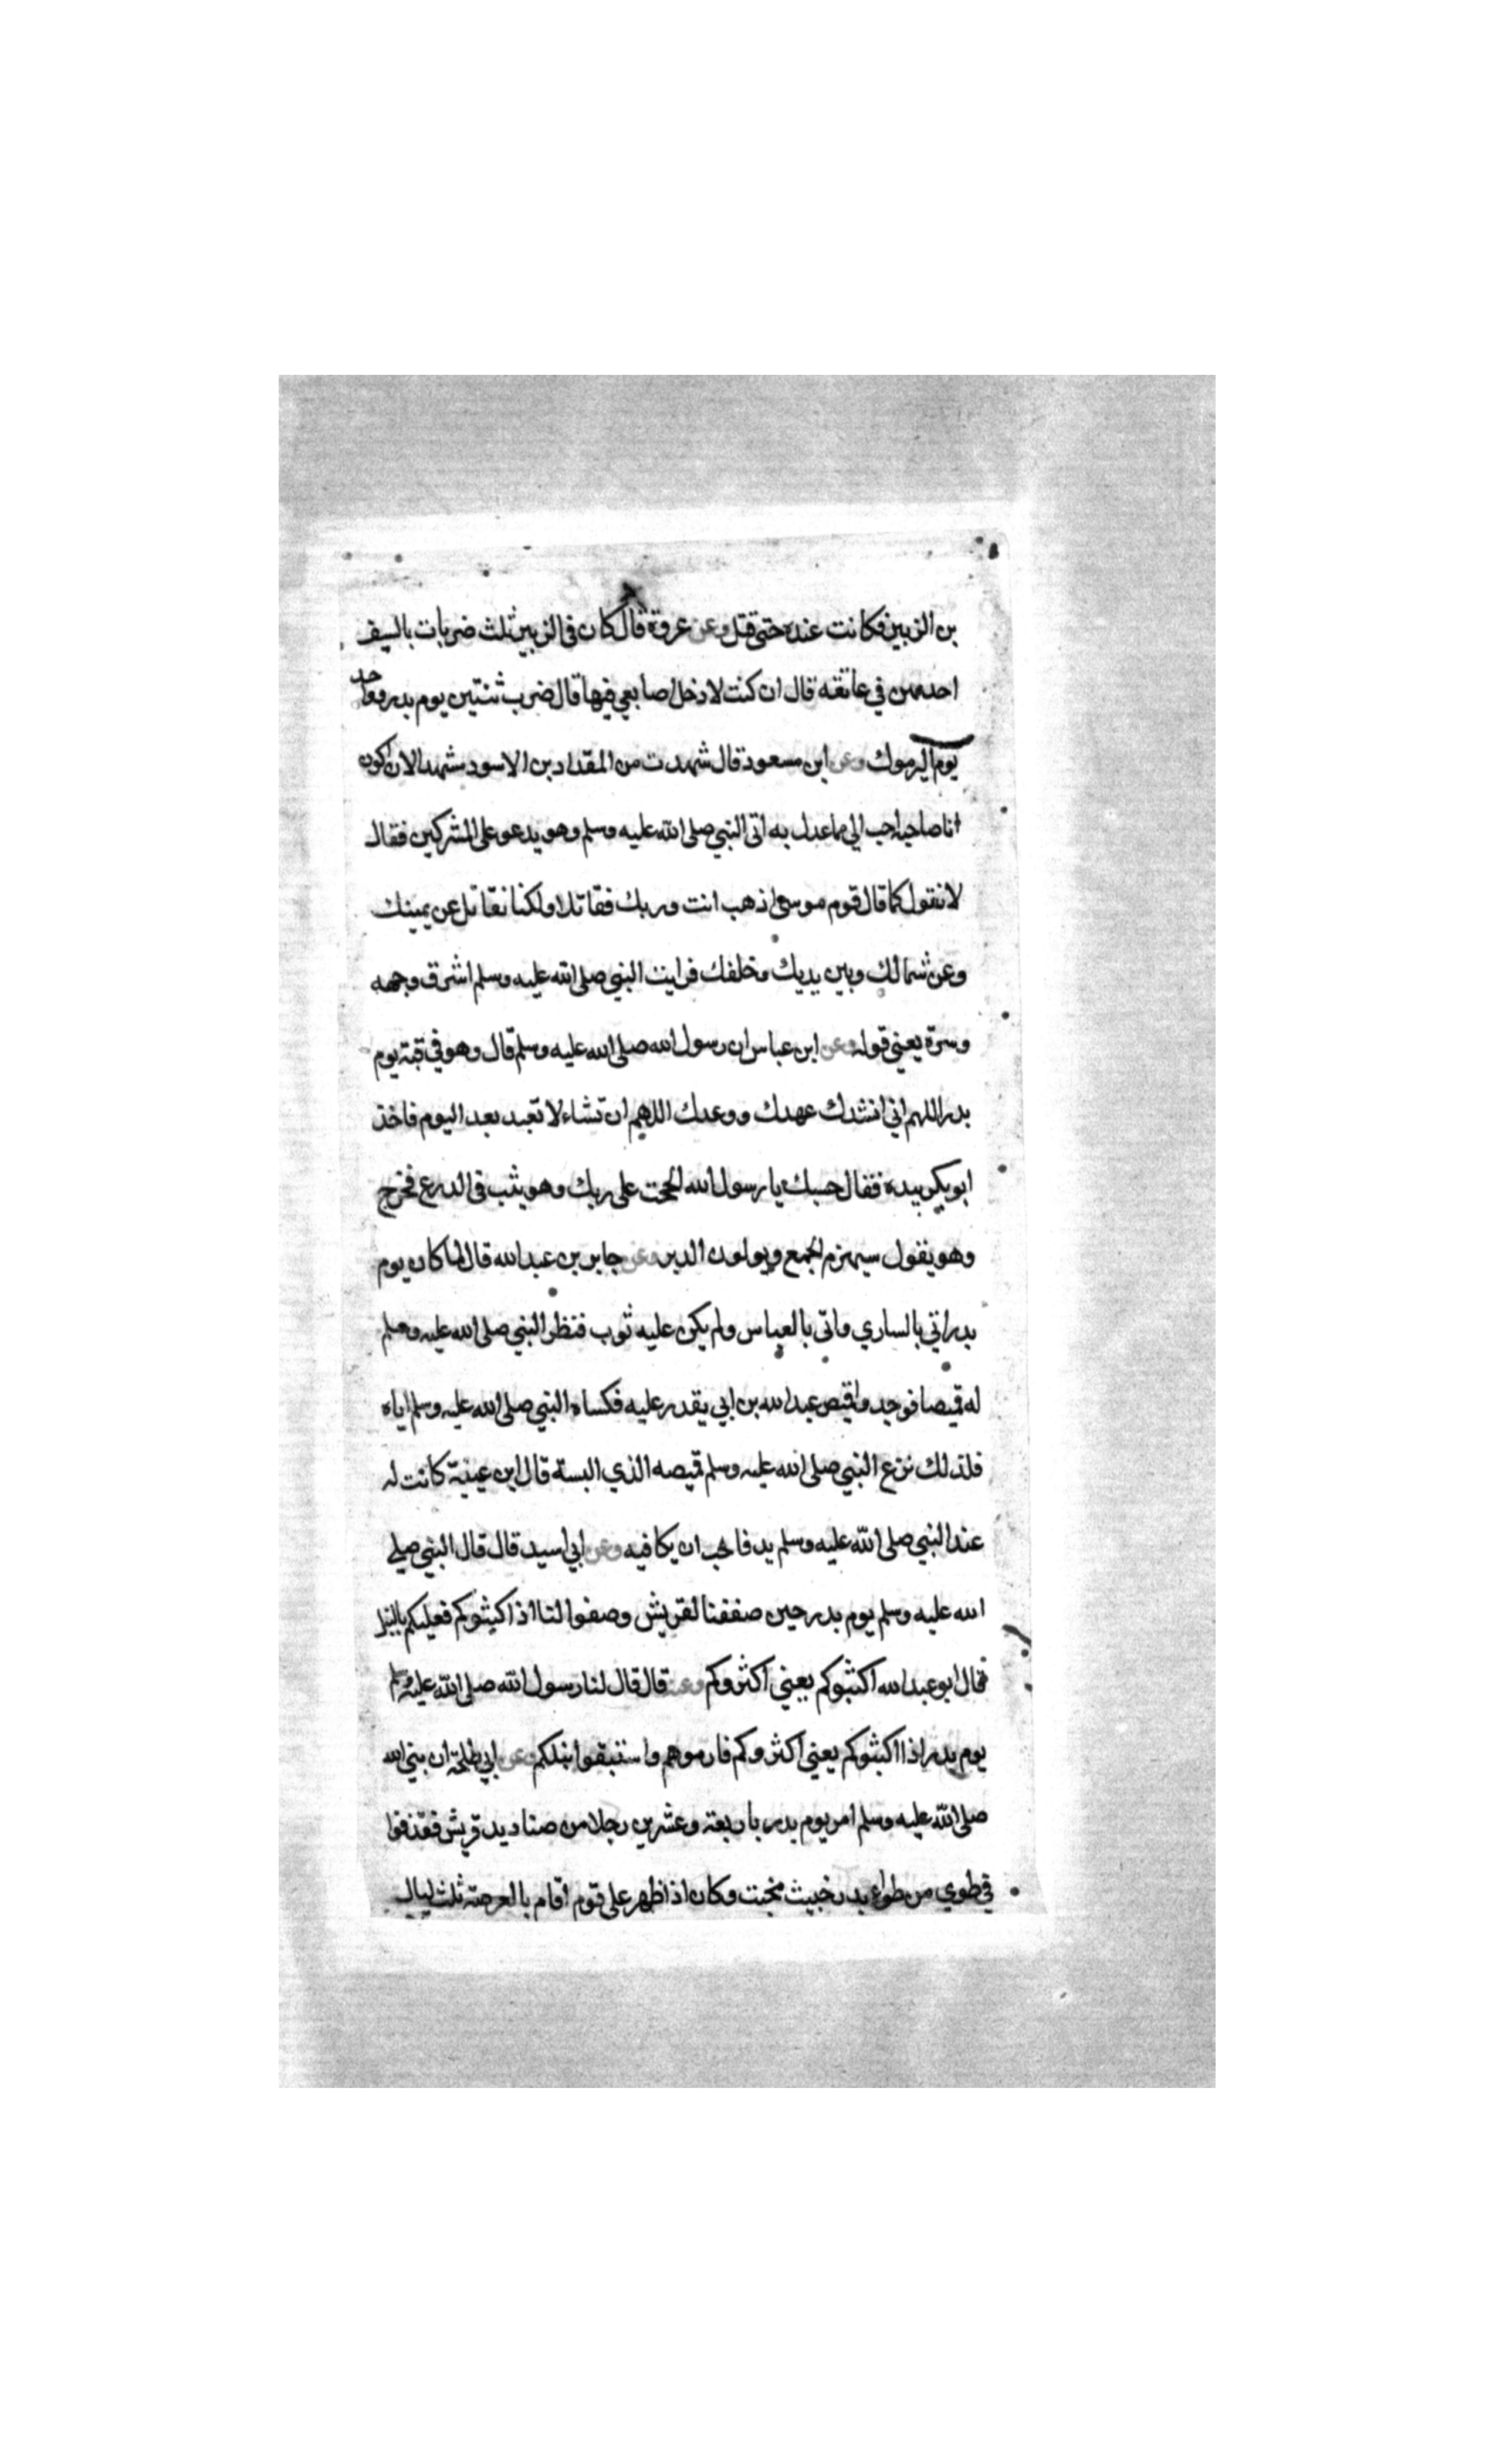 بن الزبير فكانت عنده حتى قتل وعن عروة قال كان في الزبير ثلث ضربات بالسيف
احدهن في عاتقه قال ان كنت لادخل اصابعي فيها قال ضرب ثنتين يوم بدر وواحد
يوم اليرموك وعن ابن مسعود قال شهدت من المقداد بن الاسود مشهدا لان اكون
انا صاحبه احب الي مما عدل به اتى النبي صلى الله عليه وسلم وهو يدعو على المشركين فقال
لا نقول كما قال قوم موسى اذهب انت وربك فقاتلا ولكنا نقاتل عن يمينك
وعن شمالك وبين يديك وخلفك فرايت النبي صلى الله عليه وسلم اشرق وجهه
وسرة يعني قوله وعن ابن عباس ان رسول الله صلى الله عليه وسلم قال وهو في قبة يوم
بدر اللهم اني انشدك عهدك ووعدك اللهم ان تشاء لا تعبد بعد اليوم فاخذ
ابو بكر بيده فقال حسبك يا رسول الله الححت على ربك وهو يثب في الدرع فخرج
وهو يقول سيهزم الجمع ويولون الدبر وعن جابر بن عبد الله قال لما كان يوم
بدر اتي بالساري واتى بالعباس ولم يكن عليه ثوب فنظر النبي صلى الله عليه وسلم
له قميصا فوجدوا قميص عبد الله بن ابي يقدر عليه فكساه النبي صلى الله عليه وسلم اياه
فلذلك نزع النبي صلى الله عليه وسلم قميصه الذي البسة قال ابن عيينة كانت له
عند النبي صلى الله عليه وسلم يد فاحب ان يكافيه وعن ابي اسيد قال قال النبي صلى
الله عليه وسلم يوم بدر حين صففنا لقريش وصفوا لنا اذا اكثبوكم فعليكم بالنبل
قال ابو عبد الله اكثبوكم يعني اكثروكم وعنه قال قال لنا رسول الله صلى الله عليه وسلم
يوم بدر اذا اكثبوكم يعني اكثروكم فارموهم واستبقوا نبلكم وعن ابي طلحة ان نبي الله
صلى الله عليه وسلم امر يوم بدر باربعة وعشرين رجلا من صناديد قريش فقذفوا
في طوي من طواء بدر خبيث مخبث وكان اذا ظهر على قوم اقام بالعرصة ثلث ليال